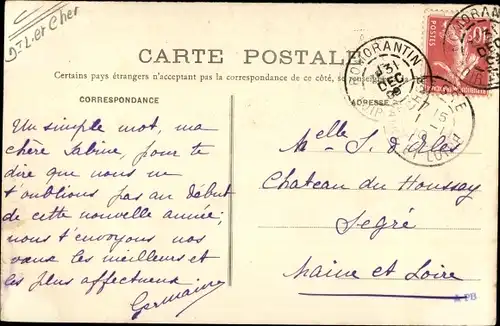 Dt L. et Cher
CARTE POSTALE
Certains pays étrangers n'acceptent pas la correspondance de ce côté, se
CORRESPONDANCE
ADRESSE
ROMORANTIN
31
DEC
POSTES
10
Un simple mot, ma
chère Sabine, pour te
dire que nous ne
t'oublions pas au début
de cette nouvelle année;
nous t'envoyons nos
vœux les meilleurs et
les plus affectueux
Germaine
Melle S.
Chateau du Houssay
Segré
Maine et Loire
PB